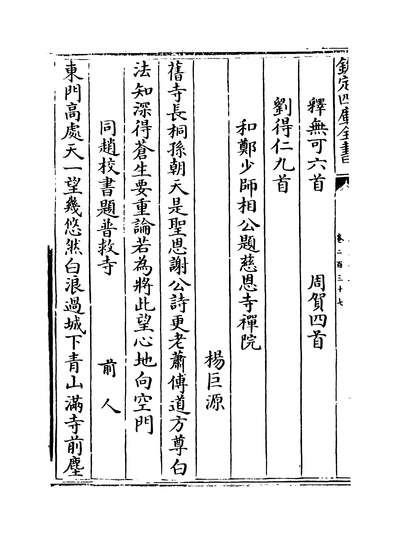 欽定四庫全書
卷二百三十七
釋無可六首 周賀四首
劉得仁九首
和鄭少師相公題慈恩寺禪院
楊巨源
舊寺長桐孫朝天是聖恩謝公詩更老蕭傅道方尊白
法知深得蒼生要重論若為將此望心地向空門
同趙校書題普救寺 前人
東門高處天一望幾悠然白浪過城下青山滿寺前塵